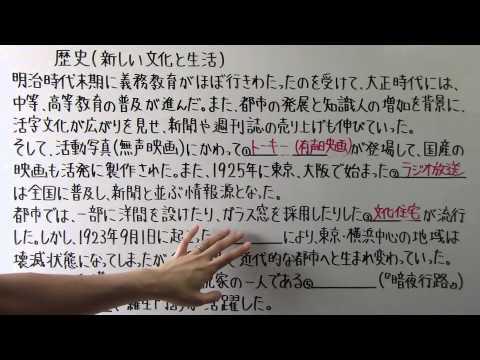 歴史(新しい文化と生活)
明治時代末期に義務教育がほぼ行きわたったのを受けて、大正時代には、
中等、高等教育の普及が進んだ。また、都市の発展と知識人の増加を背景に、
活字文化が広がりを見せ、新聞や週刊誌の売り上げも伸びていった。
そして、活動写真(無声映画)にかわって①トーキー(有声映画)が登場して、国産の
映画も活発に製作された。また、1925年に東京、大阪で始まった②ラジオ放送
は全国に普及し、新聞と並ぶ情報源となった。
都市では、一部に洋間を設けたり、ガラス窓を採用したりした③文化住宅が流行
した。しかし、1923年9月1日に起こった により、東京・横浜中心の地域は
壊滅状態になってしまったが 近代的な都市へと生まれ変わっていった。
家の一人である ( 『暗夜行路』)
羅生門 が活躍した。